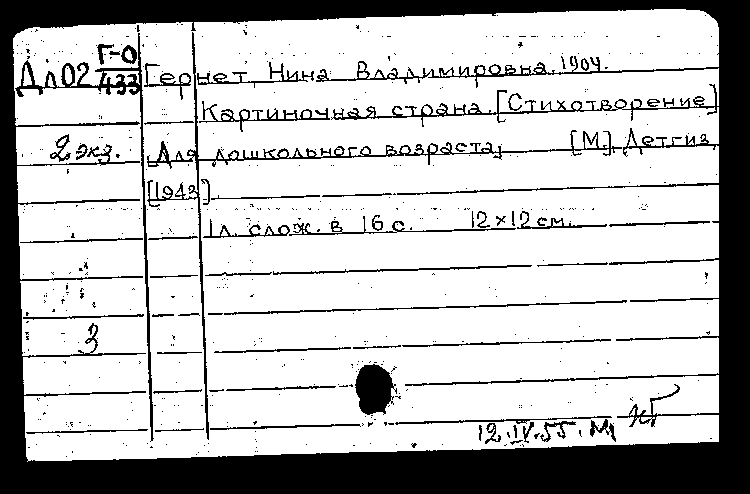 Дл 02 Г-0/433
Гернет, Нина Владимировна, 1904.
Картиночная страна. [Стихотворение]
2 экз.
Для дошкольного возраста, [М], Детгиз,
[1943].
1 л. слож. в 16 с. 12×12 см.
3
12.IV.55.